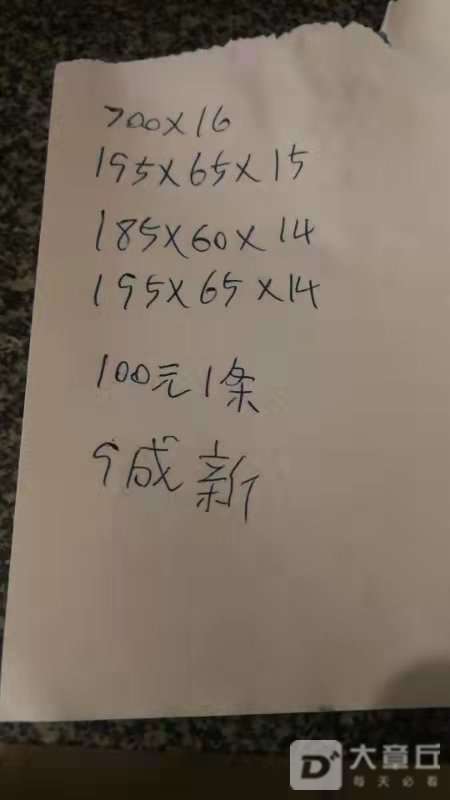 700×16
195×65×15
185×60×14
195×65×14
100元1条
9成新
D+ 大章丘
每天必看